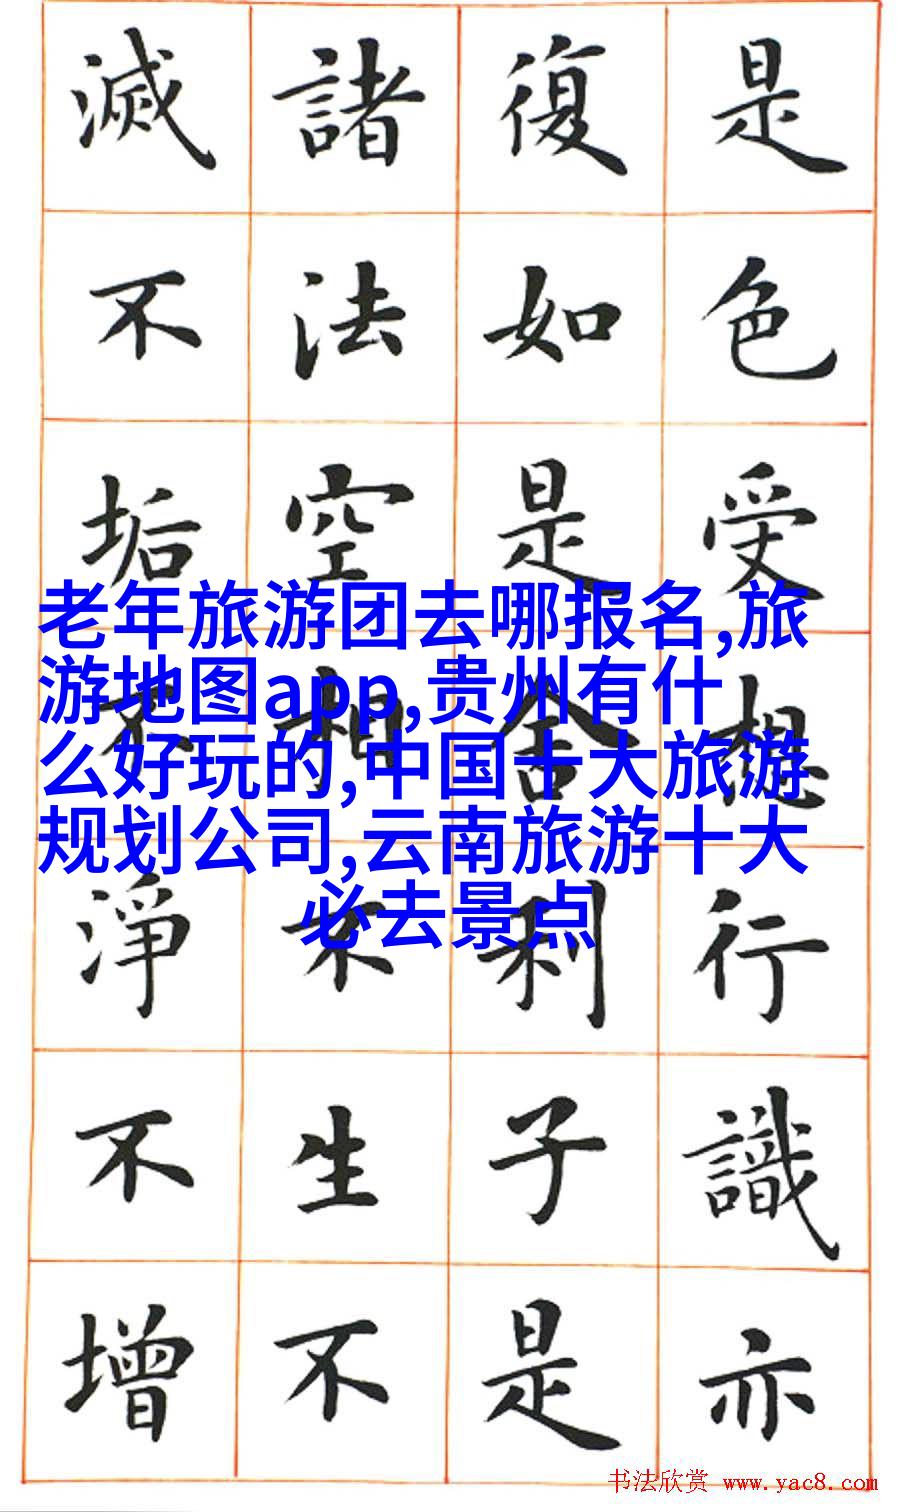 是色受想行識亦
復如是舍利子是
諸法空相不生不
滅不垢不淨不增
老年旅游团去哪报名,旅
游地图app,贵州有什
么好玩的,中国十大旅游
规划公司,云南旅游十大
必去景点
书法欣赏 www.yac8.com